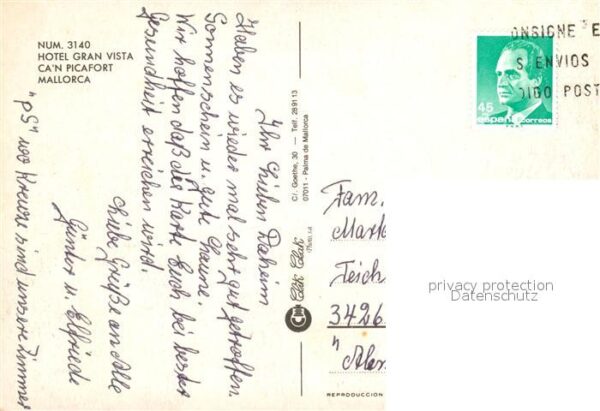 NUM. 3140
HOTEL GRAN VISTA
CA'N PICAFORT
MALLORCA
Ihr Lieben Daheim
Haben es wieder mal sehr gut getroffen.
Sonnenschein u. gute Laune.
Wir hoffen daß die Karte Euch bei bester
Gesundheit erreichen wird.
Liebe Grüße an Alle
Günter u. Elfriede
"PS" wo Kreuze sind unsere Zimmer
C/. Goethe, 30 — Telf. 28 91 13
07011 - Palma de Mallorca
Clik Clak
REPRODUCCION
ONSIGNE E
S ENVIOS
DIGO POST
45
españa correos
Fam.
Markt
Teich
3426
privacy protection
Datenschutz